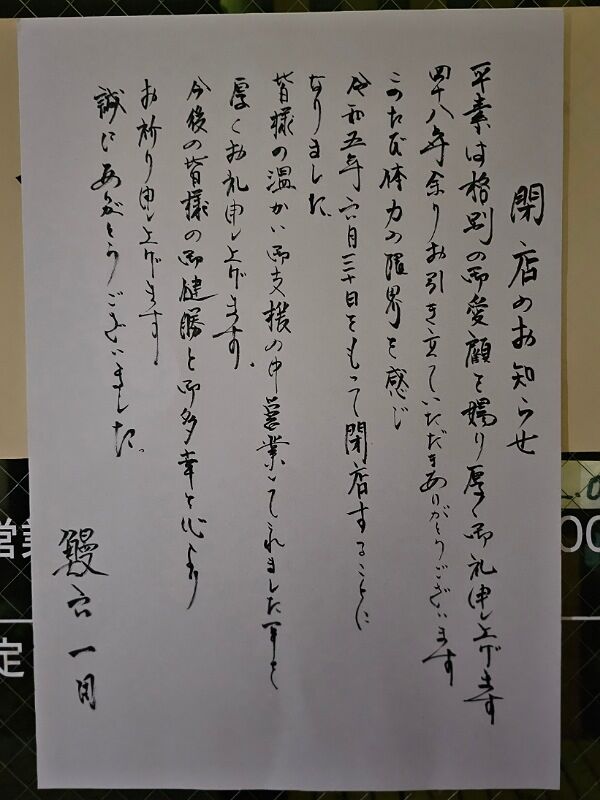 閉店のお知らせ
平素は格別の御愛顧を賜り厚く御礼申し上げます
四十八年余りお引き立ていただきありがとうございます
このたび体力の限界を感じ
令和五年六月三十日をもって閉店することに
なりました。
皆様の温かい御支援の中営業してこれました事を
厚くお礼申し上げます。
今後の皆様の御健勝と御多幸を心より
お祈り申し上げます。
誠にありがとうございました。
鰻六一同
営業
定